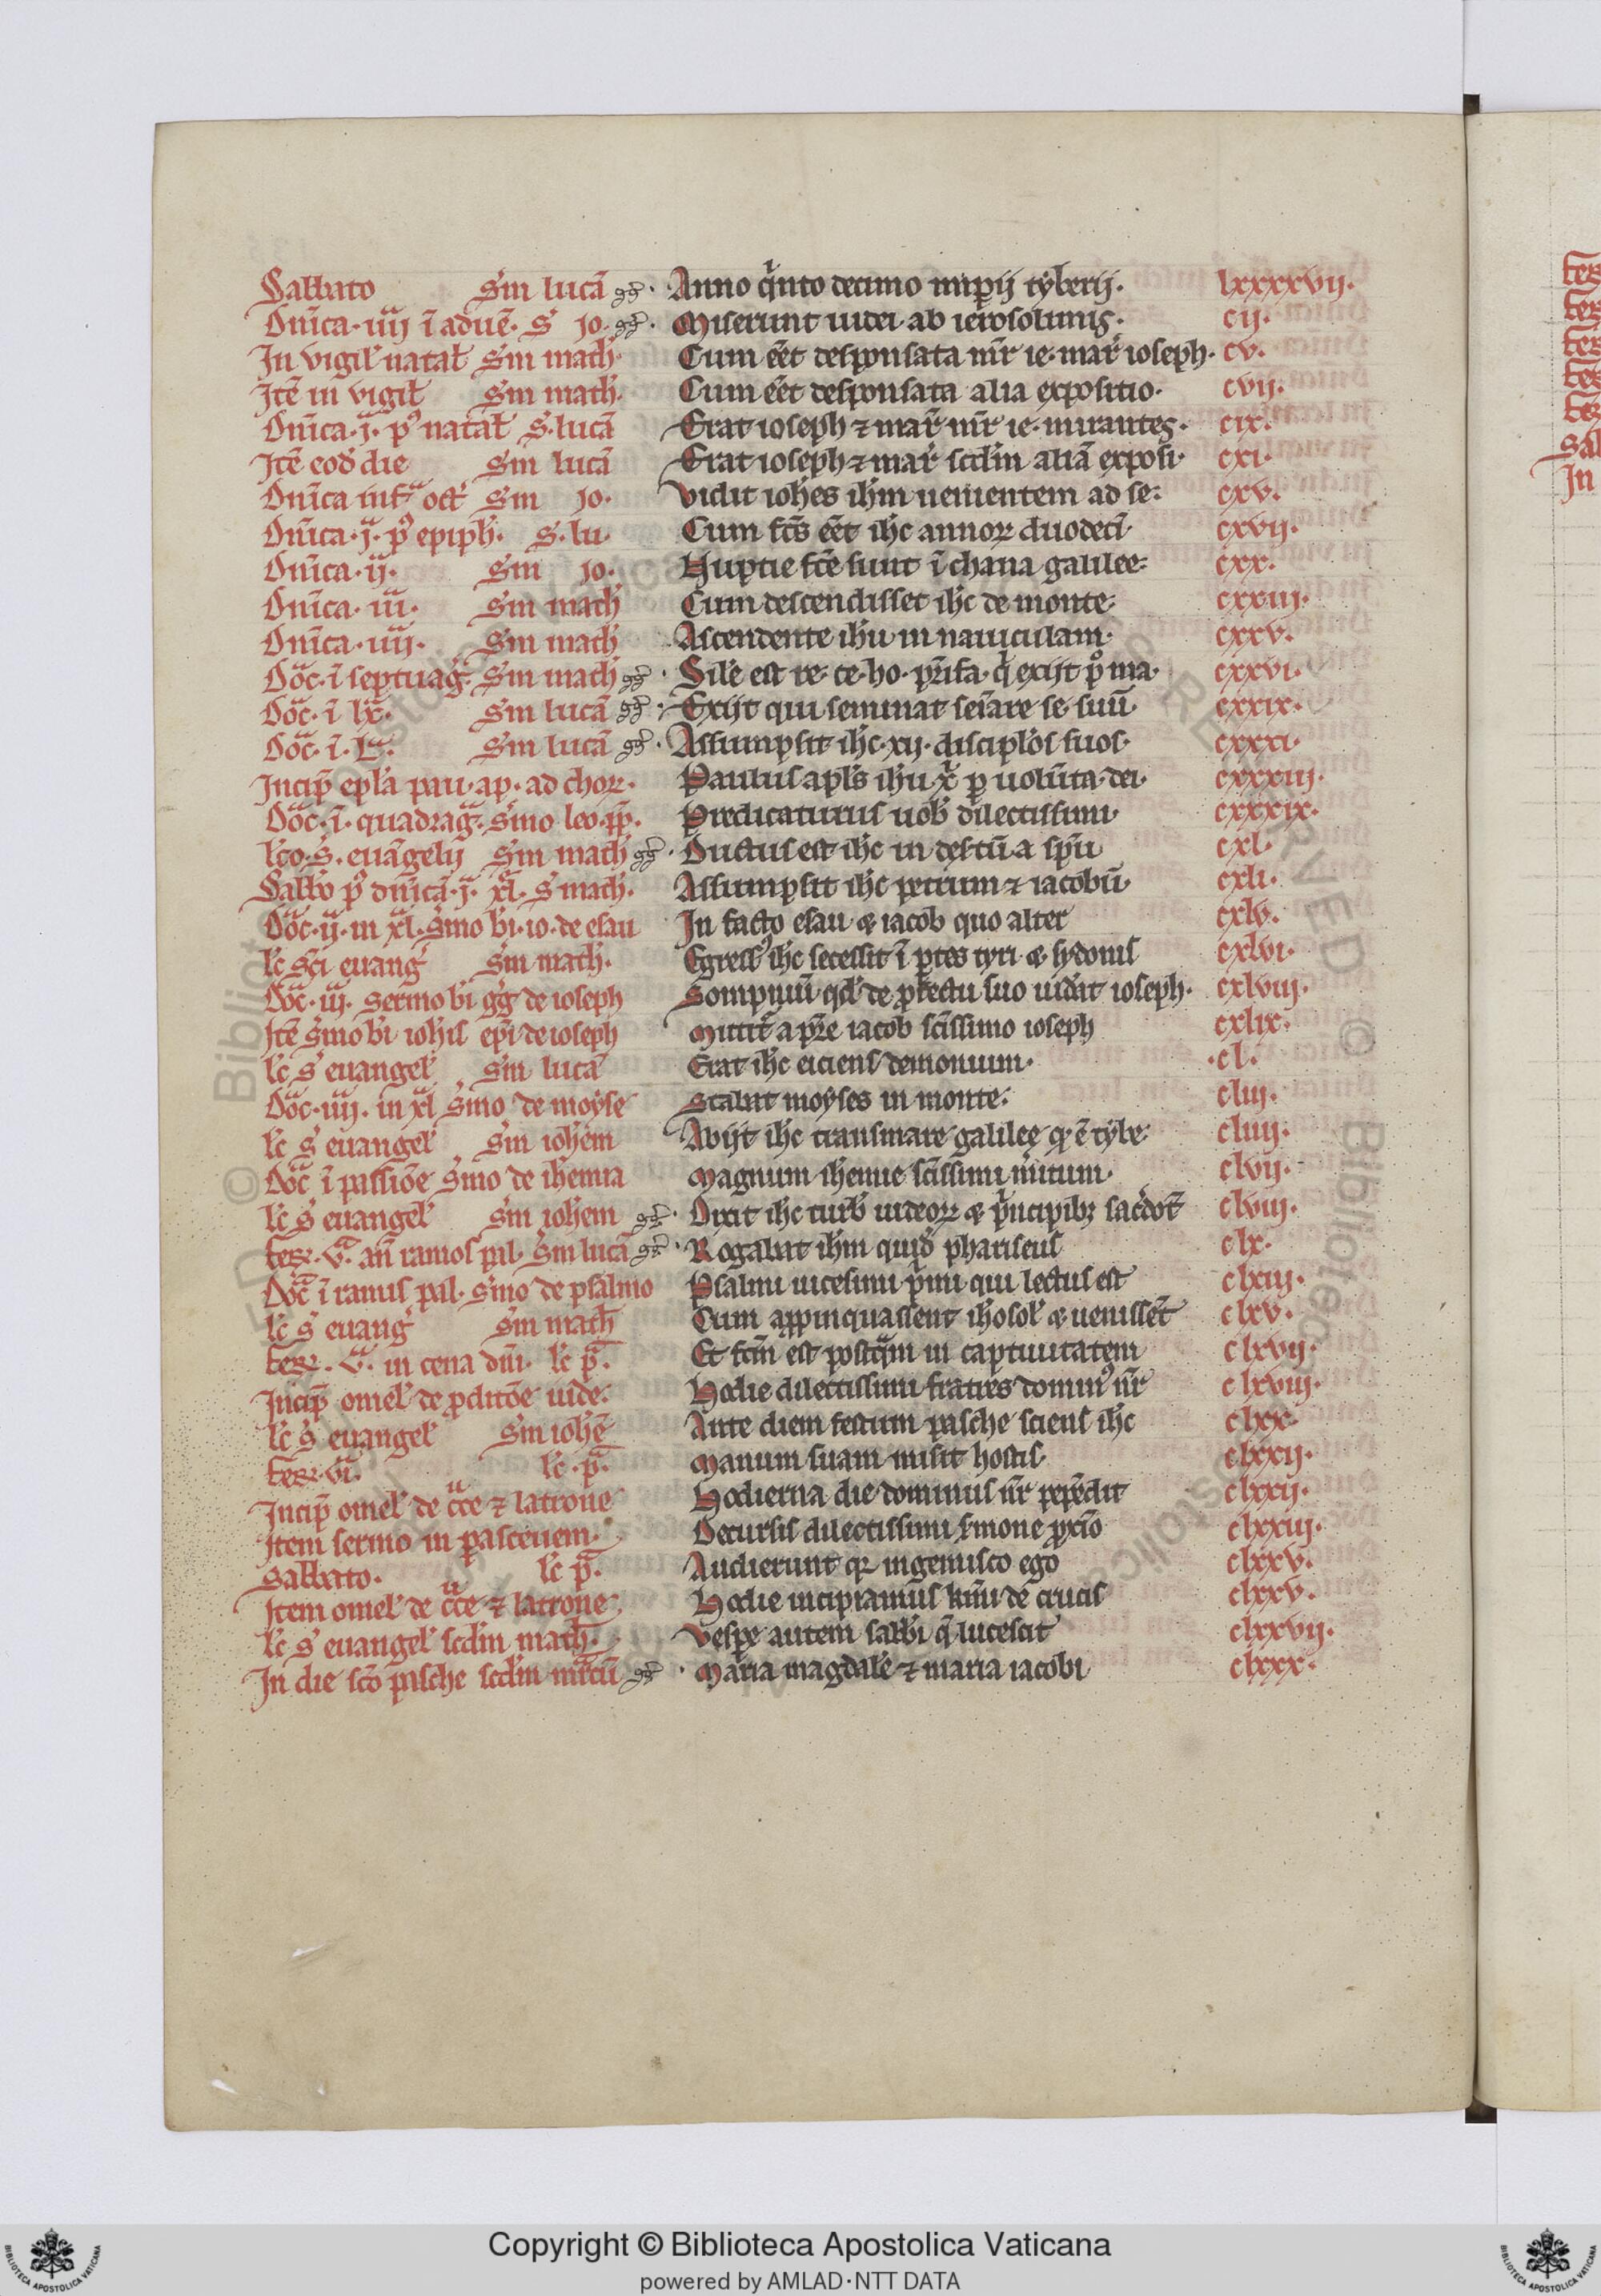 Sabbato Sm lucā gḡ· Anno q̇nto decimo impij tyberij· lxxxxvij·
Dn̄ica· iiij ī aduē· S̄ jo· gḡ· Miserunt iudei· ab ierosolimis· cij·
In vigil' natal' Sm math· Cum eēt desponsata mr̄ ie· mar̄ ioseph· cv·
Itē in vigil' Sm math· Cum eēt desponsata alia expositio· cvij·
Dn̄ica· j· p' natal' S· lucā Erat ioseph ⁊ mar̄ mr̄ ie· mirantes· cix·
Itē eod̄ die Sm lucā Erat ioseph ⁊ mar̄ scd̄m aliā exposi· cxi·
Dn̄ica infr̄ oct̄ Sm jo· Vidit ioh̄es ih̄m uenientem ad se: cxv·
Dn̄ica· j· p' epiph̄· S· lu· Cum fcs̄ eēt ih̄c annoꝝ duodecī· cxvij·
Dn̄ica· ij· Sm jo· Nuptie fcē sunt ī chana galilee: cxx·
Dn̄ica· iij· Sm math Cum descendisset ih̄c de monte· cxxiij·
Dn̄ica· iiij· Sm math Ascendente ih̄u in nauiculam· cxxv·
Dōc· ī septuaḡ· Sm math gḡ· Sile est re· ce· ho· pr̄ifa· q̇ exijt p' ma· cxxvi·
Dōc· ī lx· Sm lucā gḡ· Exijt qui seminat seīare se· suū· cxxix·
Dōc· ī· L· Sm lucā gḡ· Assumpsit ih̄c· xij· discipl'os suos· cxxxi·
Incip̄ ep̄la pau· ap· ad choꝝ· Paulus apl's ih̄u x̄ ꝑ uolūta· dei· cxxxiij·
Dōc· ī· quadraḡ· s̄mo leo· pp̄· Predicaturus uob̄ dilectissimi· cxxxix·
lc̄o· s̄· euāgelij Sm math gḡ· Ductus est ih̄c in des̄tū· a sp̄u cxl·
Sabb̄o p' dn̄icā· j· xl̄· S̄ math· Assumpsit ih̄c petrum ⁊ iacobū· cxli·
Dōc· ij· in xl̄· s̄mo b̄i· io· de esau In facto esau & iacob quo alter cxlv·
lc̄ sc̄i euanḡ Sm math· Egress' ih̄c secessit ī ptes tyri· & sydonis cxlvi·
Dōc· iij· sermo b̄i gḡ de ioseph Sompniū qd̄ de ꝓfectu suo uid̄at ioseph· cxlviij·
Itē s̄mo b̄i ioh̄is ep̄i de ioseph Mittit̄ a pr̄e iacob sc̄issimo ioseph cxlix·
lc̄ s̄ euangel' Sm lucā Erat ih̄c eiciens demonium· ·cl·
Dōc· iiij· in xl̄ s̄mo de moyse Stabat moyses in monte: cliij·
lc̄ s̄ euangel' Sm ioh̄em Abijt ih̄c transmare galilee q̄ ē tybe· cliiij·
Dōc ī passiōe s̄mo de ih̄emia Magnum ih̄emie sc̄issimi m̄itum· clvij·
lc̄ s̄ euangel' Sm ioh̄em gḡ· Dixit ih̄c turb̄ iudeoꝝ & p̄ncipibꝫ sac̄dot̄ clviij·
feꝝ· v· an̄ ramos pal· Sm lucā gḡ· Rogabat ih̄m quid̄ phariseus clx·
Dōc ī ramis pal· s̄mo de psalmo Psalmi uicesimi p̄mi qui lectus est clxiij·
lc̄ s̄ euanḡ Sm math Cum appinquassent ih̄osol' & uenissēt clxv·
feꝝ· v· in cena dn̄i· lc̄ p̄· Et fcm̄ est postq̄m in captiuitatem clxvij·
Incip̄ omel' de ꝓditōe iude· Hodie dilectissimi fratres domin' nr̄ clxviij·
lc̄ s̄ euangel' Sm ioh̄ē Ante diem festum pasche sciens ih̄c clxx·
feꝝ· vi· lc̄· p̄· Manum suam misit hostis· clxxij·
Incip̄ omel' de c̄ce ⁊ latrone Hodierna die dominus nr̄ pepēdit clxxij·
Item sermo in pasceuem· Decursis dilectissimi s̄mone ꝓxīo clxxiij·
Sabbato· lc̄ p̄· Audierunt qꝛ ingemisco ego clxxv·
Item omel' de c̄ce ⁊ latrone· Hodie incipiamus km̄i de crucis clxxv·
lc̄ s̄ euangel' scd̄m math· Vespe autem sabb̄i q̄ lucescit clxxvij·
In die sc̄o pasche scd̄m m̄rcū gḡ· Maria magdale ⁊ maria iacobi clxxx·
Copyright © Biblioteca Apostolica Vaticana
powered by AMLAD·NTT DATA